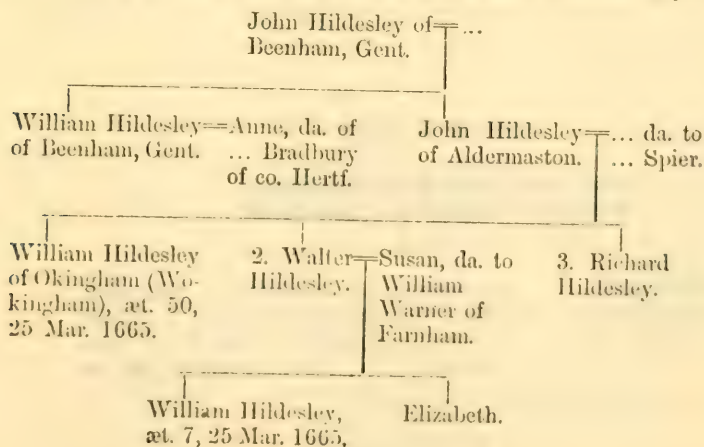 John Hildesley of=...
Beenham, Gent.
William Hildesley=Anne, da. of
of Beenham, Gent. ... Bradbury
of co. Hertf.
John Hildesley=... da. to
of Aldermaston. ... Spier.
William Hildesley
of Okingham (Wo-
kingham), æt. 50,
25 Mar. 1665.
2. Walter=Susan, da. to
Hildesley. William
Warner of
Farnham.
3. Richard
Hildesley.
William Hildesley,
æt. 7, 25 Mar. 1665.
Elizabeth.